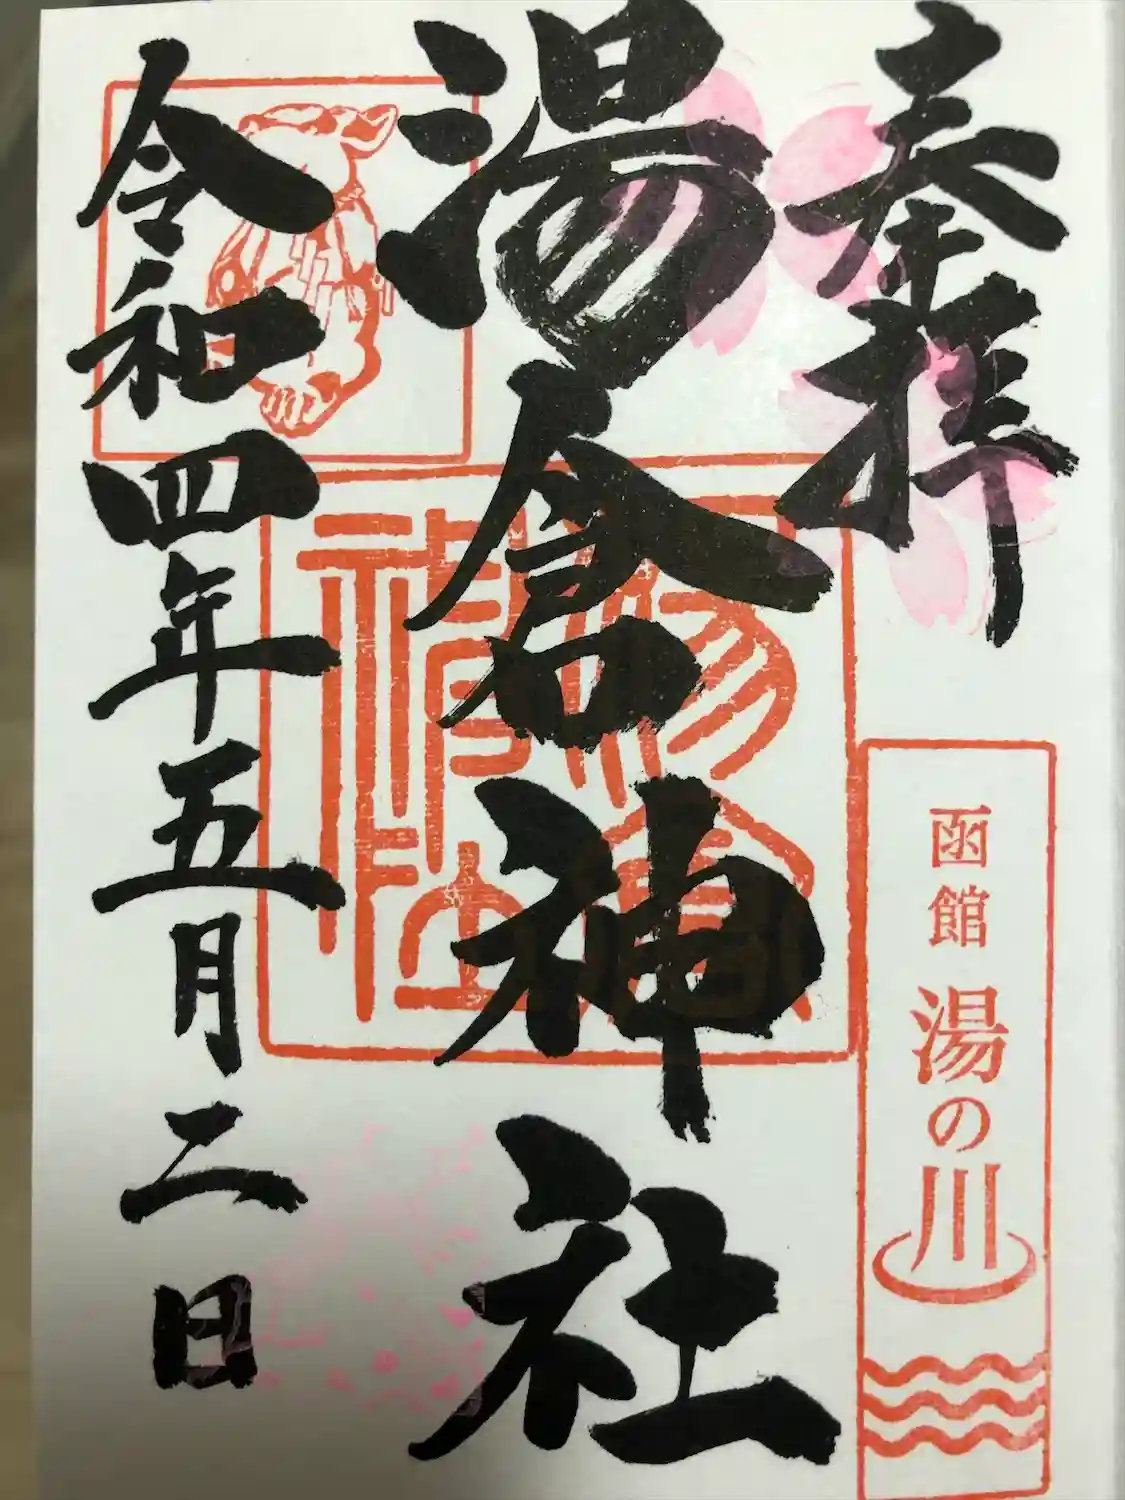 奉拝
函館 湯の川
湯倉神社
湯倉神社
令和四年五月二日